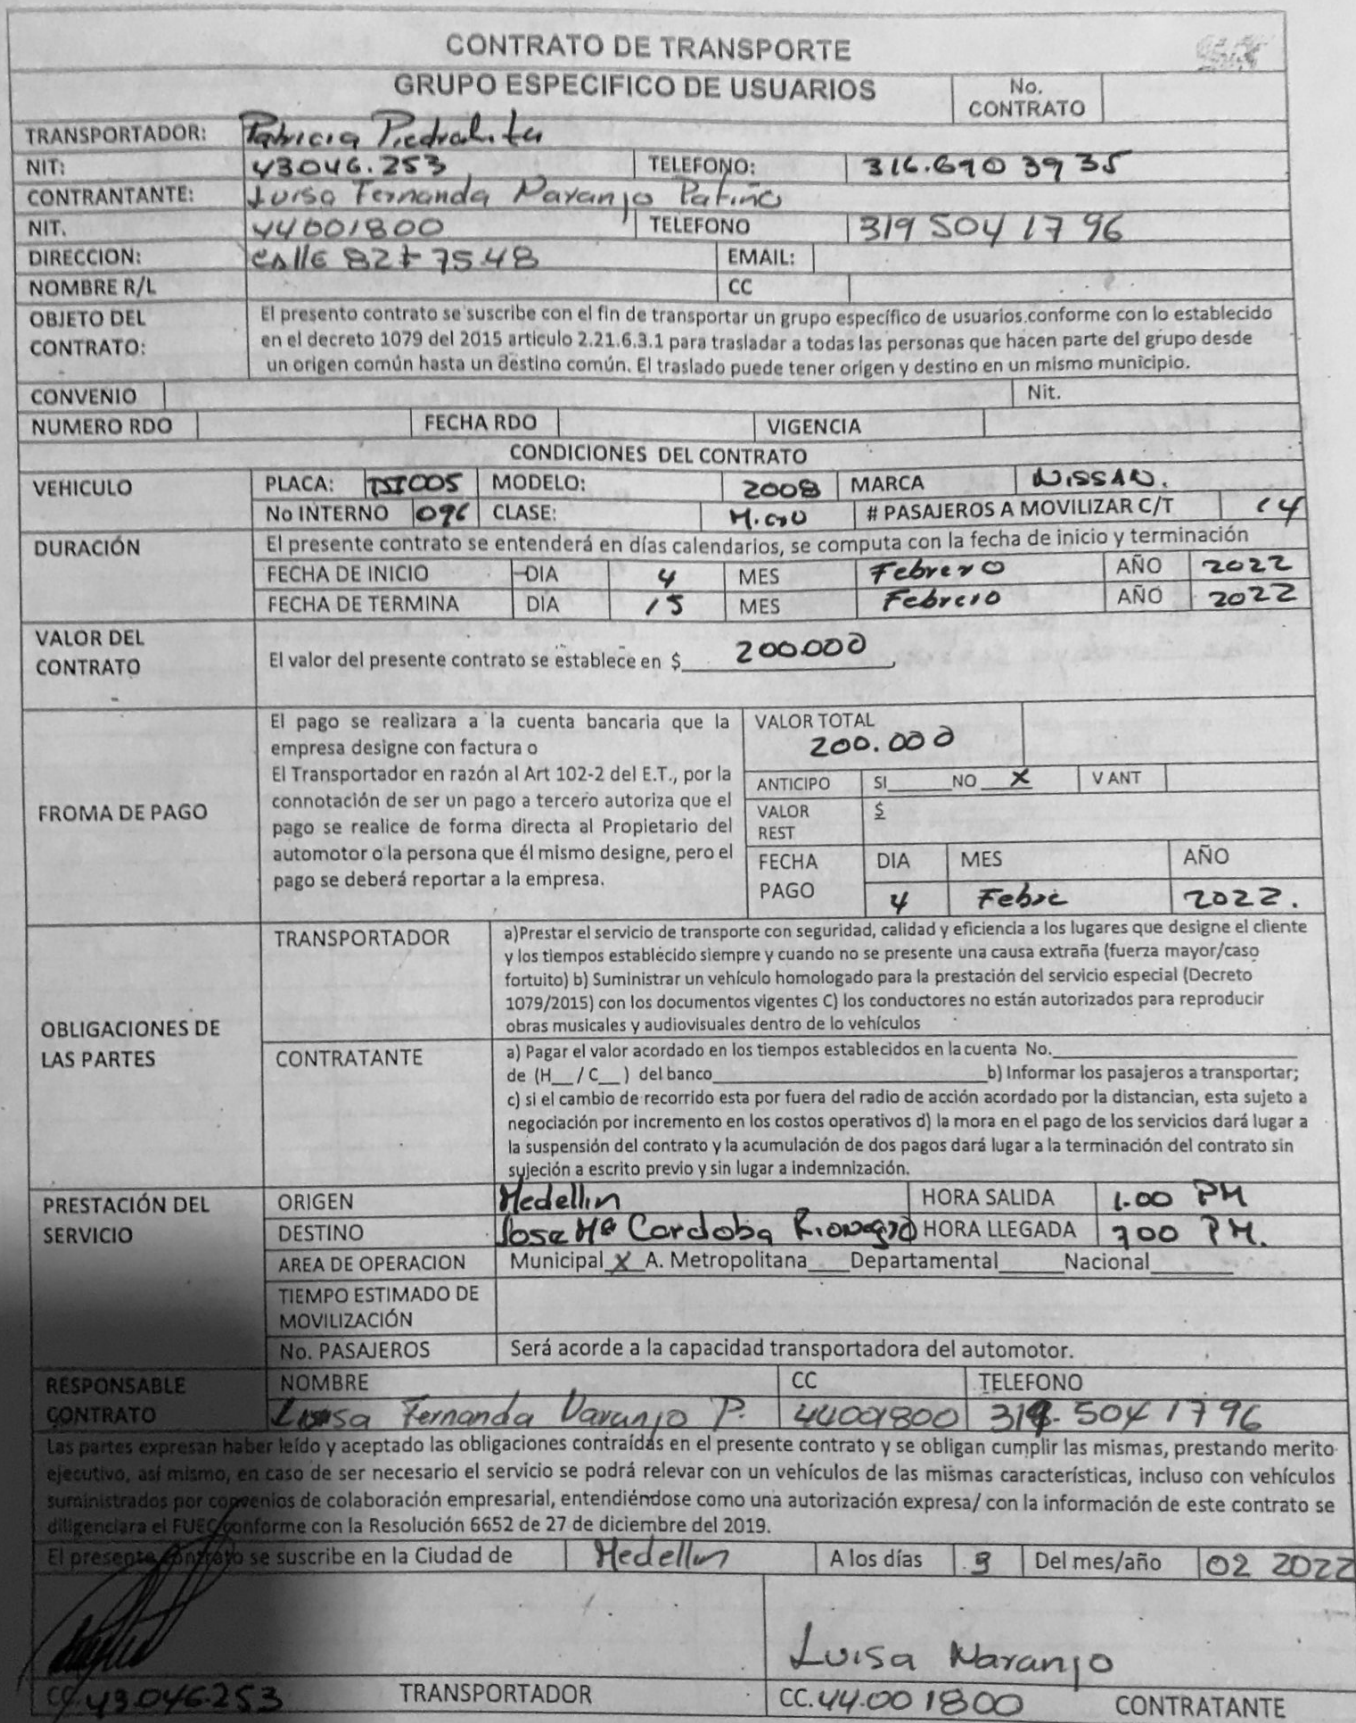 CONTRATO DE TRANSPORTE
GRUPO ESPECIFICO DE USUARIOS
No. CONTRATO
TRANSPORTADOR: Patricia Piedrahita
NIT: 43046.253 TELEFONO: 316.690 39 35
CONTRANTANTE: Luisa Fernanda Naranjo Patiño
NIT. 44001800 TELEFONO 319 504 17 96
DIRECCION: calle 82 # 75.48 EMAIL:
NOMBRE R/L CC
OBJETO DEL CONTRATO: El presento contrato se suscribe con el fin de transportar un grupo específico de usuarios conforme con lo establecido
en el decreto 1079 del 2015 articulo 2.21.6.3.1 para trasladar a todas las personas que hacen parte del grupo desde
un origen común hasta un destino común. El traslado puede tener origen y destino en un mismo municipio.
CONVENIO Nit.
NUMERO RDO FECHA RDO VIGENCIA
CONDICIONES DEL CONTRATO
VEHICULO PLACA: TSI005 MODELO: 2008 MARCA NISSAN.
No INTERNO 096 CLASE: Micro # PASAJEROS A MOVILIZAR C/T 14
DURACIÓN El presente contrato se entenderá en días calendarios, se computa con la fecha de inicio y terminación
FECHA DE INICIO DIA 4 MES Febrero AÑO 2022
FECHA DE TERMINA DIA 15 MES Febrero AÑO 2022
VALOR DEL CONTRATO El valor del presente contrato se establece en $ 200.000
FROMA DE PAGO
El pago se realizara a la cuenta bancaria que la
empresa designe con factura o
El Transportador en razón al Art 102-2 del E.T., por la
connotación de ser un pago a tercero autoriza que el
pago se realice de forma directa al Propietario del
automotor o la persona que él mismo designe, pero el
pago se deberá reportar a la empresa.
VALOR TOTAL
200.000
ANTICIPO SI____ NO __X__ V ANT
VALOR REST $
FECHA PAGO DIA MES AÑO
4 Febre 2022.
OBLIGACIONES DE LAS PARTES
TRANSPORTADOR a)Prestar el servicio de transporte con seguridad, calidad y eficiencia a los lugares que designe el cliente
y los tiempos establecido siempre y cuando no se presente una causa extraña (fuerza mayor/caso
fortuito) b) Suministrar un vehículo homologado para la prestación del servicio especial (Decreto
1079/2015) con los documentos vigentes C) los conductores no están autorizados para reproducir
obras musicales y audiovisuales dentro de lo vehículos
CONTRATANTE a) Pagar el valor acordado en los tiempos establecidos en la cuenta No.____
de (H__/C__) del banco____ b) Informar los pasajeros a transportar;
c) si el cambio de recorrido esta por fuera del radio de acción acordado por la distancian, esta sujeto a
negociación por incremento en los costos operativos d) la mora en el pago de los servicios dará lugar a
la suspensión del contrato y la acumulación de dos pagos dará lugar a la terminación del contrato sin
sujeción a escrito previo y sin lugar a indemnización.
PRESTACIÓN DEL SERVICIO
ORIGEN Medellin HORA SALIDA 1.00 PM
DESTINO Jose Mª Cordoba Rionegro HORA LLEGADA 700 PM.
AREA DE OPERACION Municipal_X_A. Metropolitana____Departamental____Nacional____
TIEMPO ESTIMADO DE MOVILIZACIÓN
No. PASAJEROS Será acorde a la capacidad transportadora del automotor.
RESPONSABLE CONTRATO NOMBRE CC TELEFONO
Luisa Fernanda Naranjo P. 44001800 319.504 1796
Las partes expresan haber leído y aceptado las obligaciones contraídas en el presente contrato y se obligan cumplir las mismas, prestando merito
ejecutivo, así mismo, en caso de ser necesario el servicio se podrá relevar con un vehículos de las mismas características, incluso con vehículos
suministrados por convenios de colaboración empresarial, entendiéndose como una autorización expresa/ con la información de este contrato se
diligenciara el FUEC conforme con la Resolución 6652 de 27 de diciembre del 2019.
El presente contrato se suscribe en la Ciudad de Medellin A los días 3 Del mes/año 02 2022
Luisa Naranjo
CC. 43.046.253 TRANSPORTADOR CC. 44.001800 CONTRATANTE